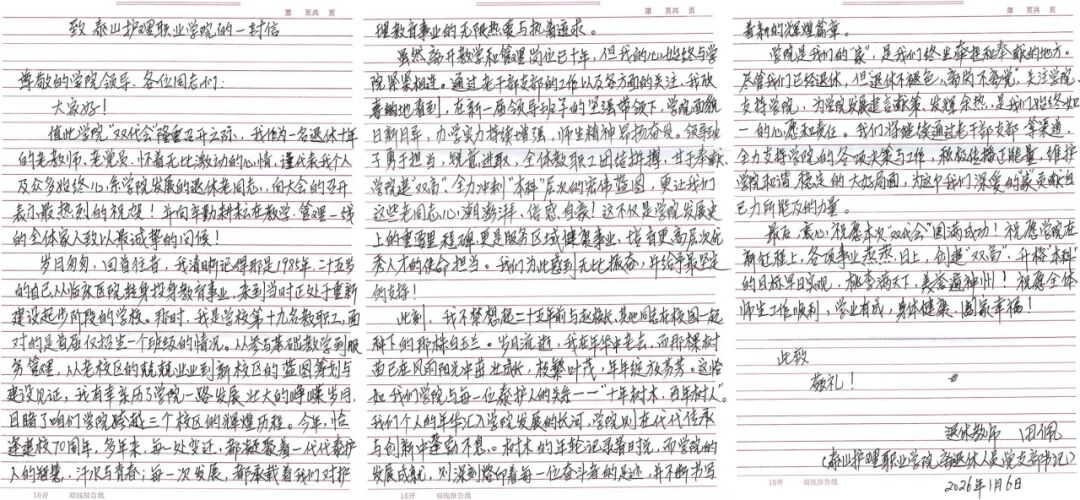 第 页共 页
致泰山护理职业学院的一封信
尊敬的学院领导、各位同志们:
大家好!
值此学院"双代会"隆重召开之际,我作为一名退休十年
的老教师、老党员,怀着无比激动的心情,谨代表我个人
及众多始终心系学院发展的退休老同志,向大会的召开
表示最热烈的祝贺!并向辛勤耕耘在教学、管理一线
的全体家人致以最诚挚的问候!
岁月匆匆,回首往昔,我清晰记得那是1985年,二十五岁
的自己从临床医院转身投身教育事业,来到当时正处于重新
建设起步阶段的学校。那时,我是学校第十九名教职工,面
对的是首届仅招生一个班级的情况。从参与基础教学到服
务管理,从老校区的兢兢业业到新校区的蓝图筹划与
建设见证,我有幸亲历了学院一路发展、壮大的峥嵘岁月,
目睹了咱们学院跨越三个校区的辉煌历程。今年,恰
逢建校70周年,多年来,每一处变迁,都凝聚着一代代泰护
人的智慧、汗水与青春;每一次发展,都承载着我们对护
16开 双线报告纸
第 页共 页
理教育事业的无限热爱与执着追求。
虽然离开教学和管理岗位已十年,但我的心始终与学
院紧紧相连。通过老干部支部的工作以及各方面的关注,我欣
喜地看到,在新一届领导班子的坚强带领下,学院面貌
日新月异,办学实力持续增强,师生精神昂扬奋发。领导班
子勇于担当,锐意进取,全体教职工团结拼搏,甘于奉献,
学院建"双高"、全力冲刺"本科"层次的宏伟蓝图,更让我们
这些老同志心潮澎湃,倍感自豪!这不仅是学院发展史
上的重要里程碑,更是服务区域健康事业、培育更高层次优
秀人才的使命担当。我们为此感到无比振奋,并给予最坚定
的支持!
此刻,我不禁想起二十五年前与赵校长、其他同志在校园一起
种下的那棵白玉兰。岁月流逝,我在年华中老去,而那棵树
苗已在风雨阳光中茁壮成长,枝繁叶茂,年年绽放芬芳。这恰
如我们学院与每一位泰护人的关系——"十年树木,百年树人"。
我们个人的年华汇入学院发展的长河,学院则在代代传承
与创新中蓬勃不息。树木的年轮记录着时光,而学院的
发展成就,则深刻烙印着每一位奋斗者的足迹,并不断书写
16开 双线报告纸
第 页共 页
着新的辉煌篇章。
学院是我们的"家",是我们终生牵挂和奉献的地方。
尽管我们已经退休,但"退休不褪色,离岗不离党"。关注学院、
支持学院,为学院发展建言献策、发挥余热,是我们始终如
一的心愿和责任。我们将继续通过老干部支部等渠道,
全力支持学院的各项决策与工作,积极传播正能量,维护
学院和谐稳定的大好局面,为这个我们深爱的"家"贡献自
己力所能及的力量。
最后,衷心祝愿本次"双代会"圆满成功!祝愿学院在
新征程上,各项事业蒸蒸日上,创建"双高"、升格"本科"
的目标早日实现,桃李满天下,美誉通神州!祝愿全体
师生工作顺利,学业有成,身体健康,阖家幸福!
此致
敬礼!
退休教师 田佩
(泰山护理职业学院退休人员党支部书记)
2026年1月6日
16开 双线报告纸